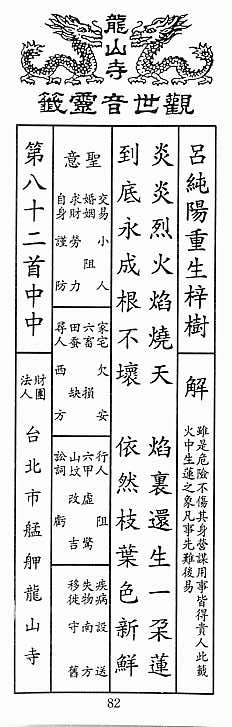 龍山寺
觀世音靈籤
呂純陽重生梓樹
解
雖是危險不傷其身營謀用事皆得貴人此籤
火中生蓮之象凡事先難後易
炎炎烈火焰燒天 焰裏還生一朶蓮
到底永成根不壞 依然枝葉色新鮮
聖意
交易 小人
婚姻 阻
求財 勞力
自身 謹防
家宅 欠安
六畜 損
田蚕 缺
尋人 西方
行人 阻
六甲 虛驚
山墳 改吉
訟詞 虧
疾病 設送
失物 南方
移徙 守舊
第八十二首中中
財團法人
台北市艋舺龍山寺
82